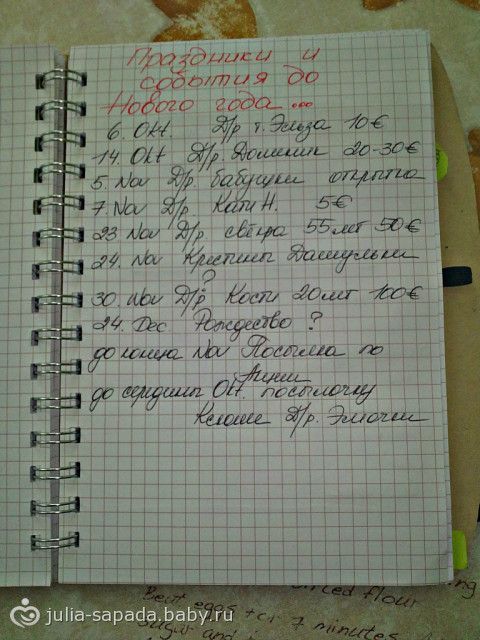 Праздники и
события до
Нового года...
6. Okt. Д/р т. Эльза 10€
14. Okt Д/р. Доминик 20-30€
5. Nov Д/р. бабушки открытка
7. Nov Д/р. Кати Н. 5€
23 Nov Д/р. свёкра 55 лет 50€
24. Nov Крестины Дашульки
?
30. Nov Д/р Кости 20 лет 100€
24. Dec Рождество ?
до конца Nov Посылка по
до середины Okt. посылочку
Ксюше Д/р. Эмочки
flour
Best eggs 7 minutes
Sugar and
julia-sapada.baby.ru